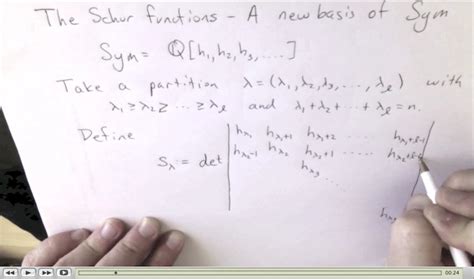 The Schur functions - A new basis of Sym
Sym = Q[h₁, h₂, h₃, ....]
Take a partition λ = (λ₁, λ₂, λ₃, ..., λ_ℓ) with
λ₁ ≥ λ₂ ≥ ... ≥ λ_ℓ and λ₁ + λ₂ + ... + λ_ℓ = n.
Define
h_λ₁ h_λ₁+1 h_λ₁+2 ..... h_λ₁+ℓ-1
S_λ = det | h_λ₂-1 h_λ₂ h_λ₂+1 .....
h_λ₃ ...
00:24